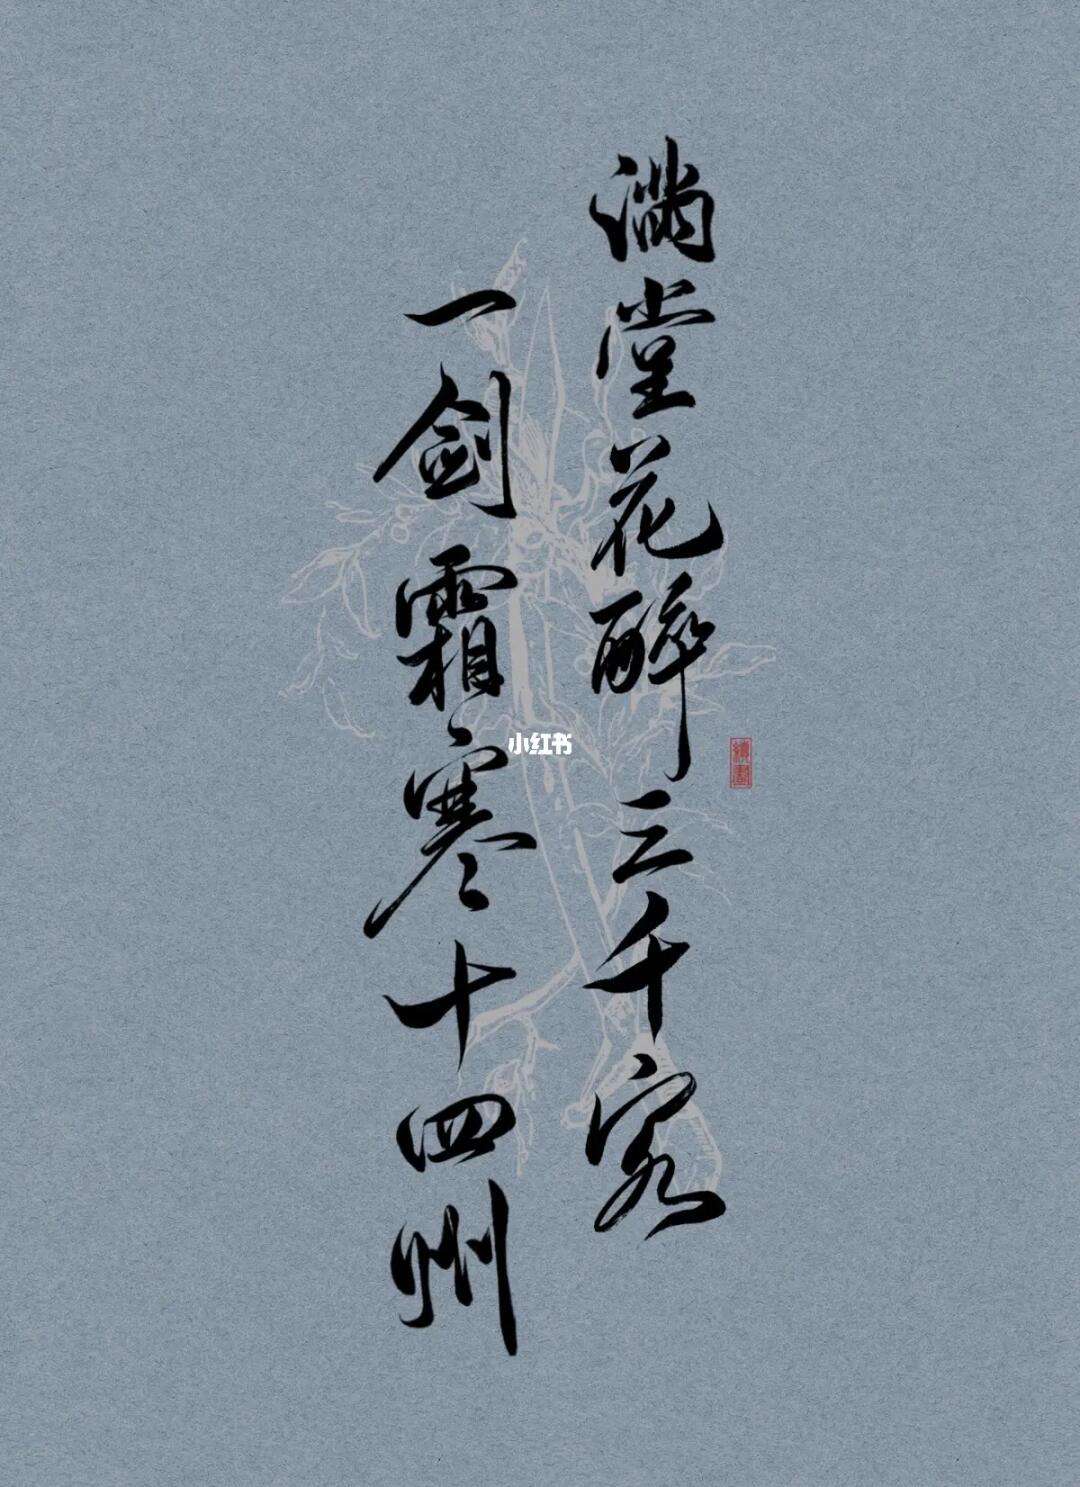 满堂花醉三千客
一剑霜寒十四州
小红书